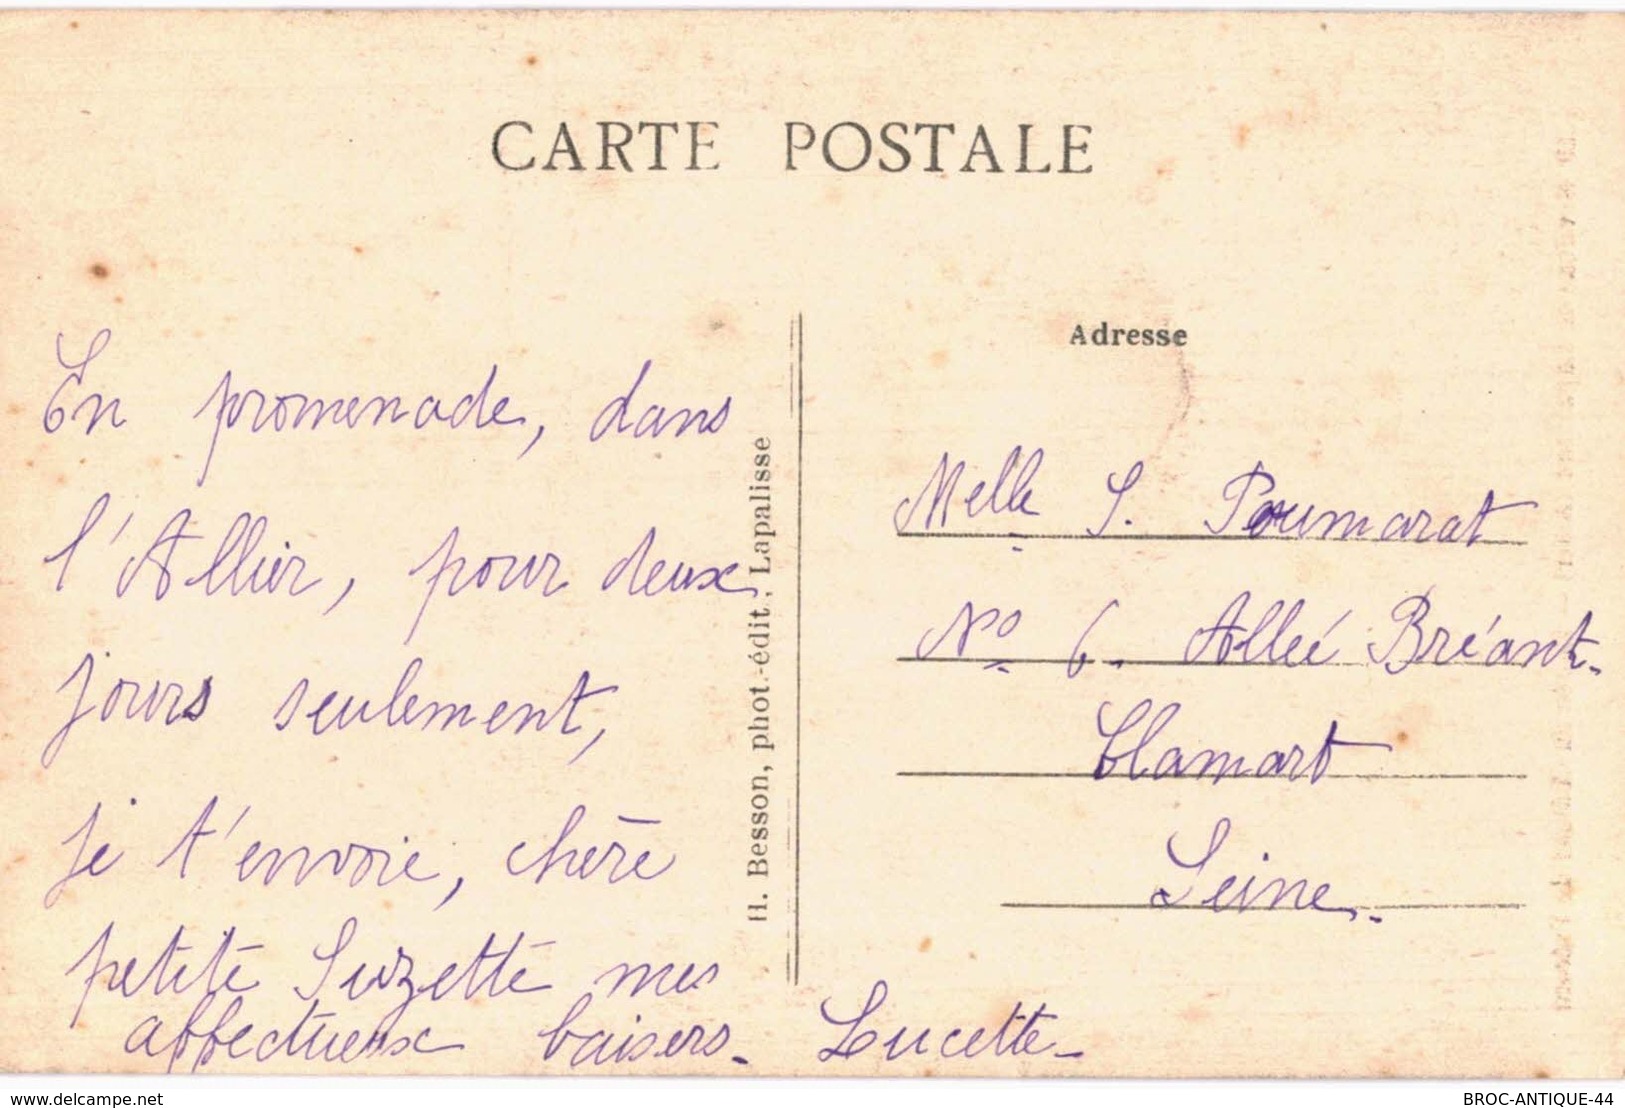 CARTE POSTALE
En promenade, dans
l'Allier, pour deux
jours seulement,
je t'envoie, chère
petite Suzette mes
affectueux baisers. Lucette
H. Besson, phot.-édit., Lapalisse
Adresse
Melle S. Poumarat
No 6. Allée Bréant.
Clamart
Seine.
delcampe.net
BROC-ANTIQUE-44